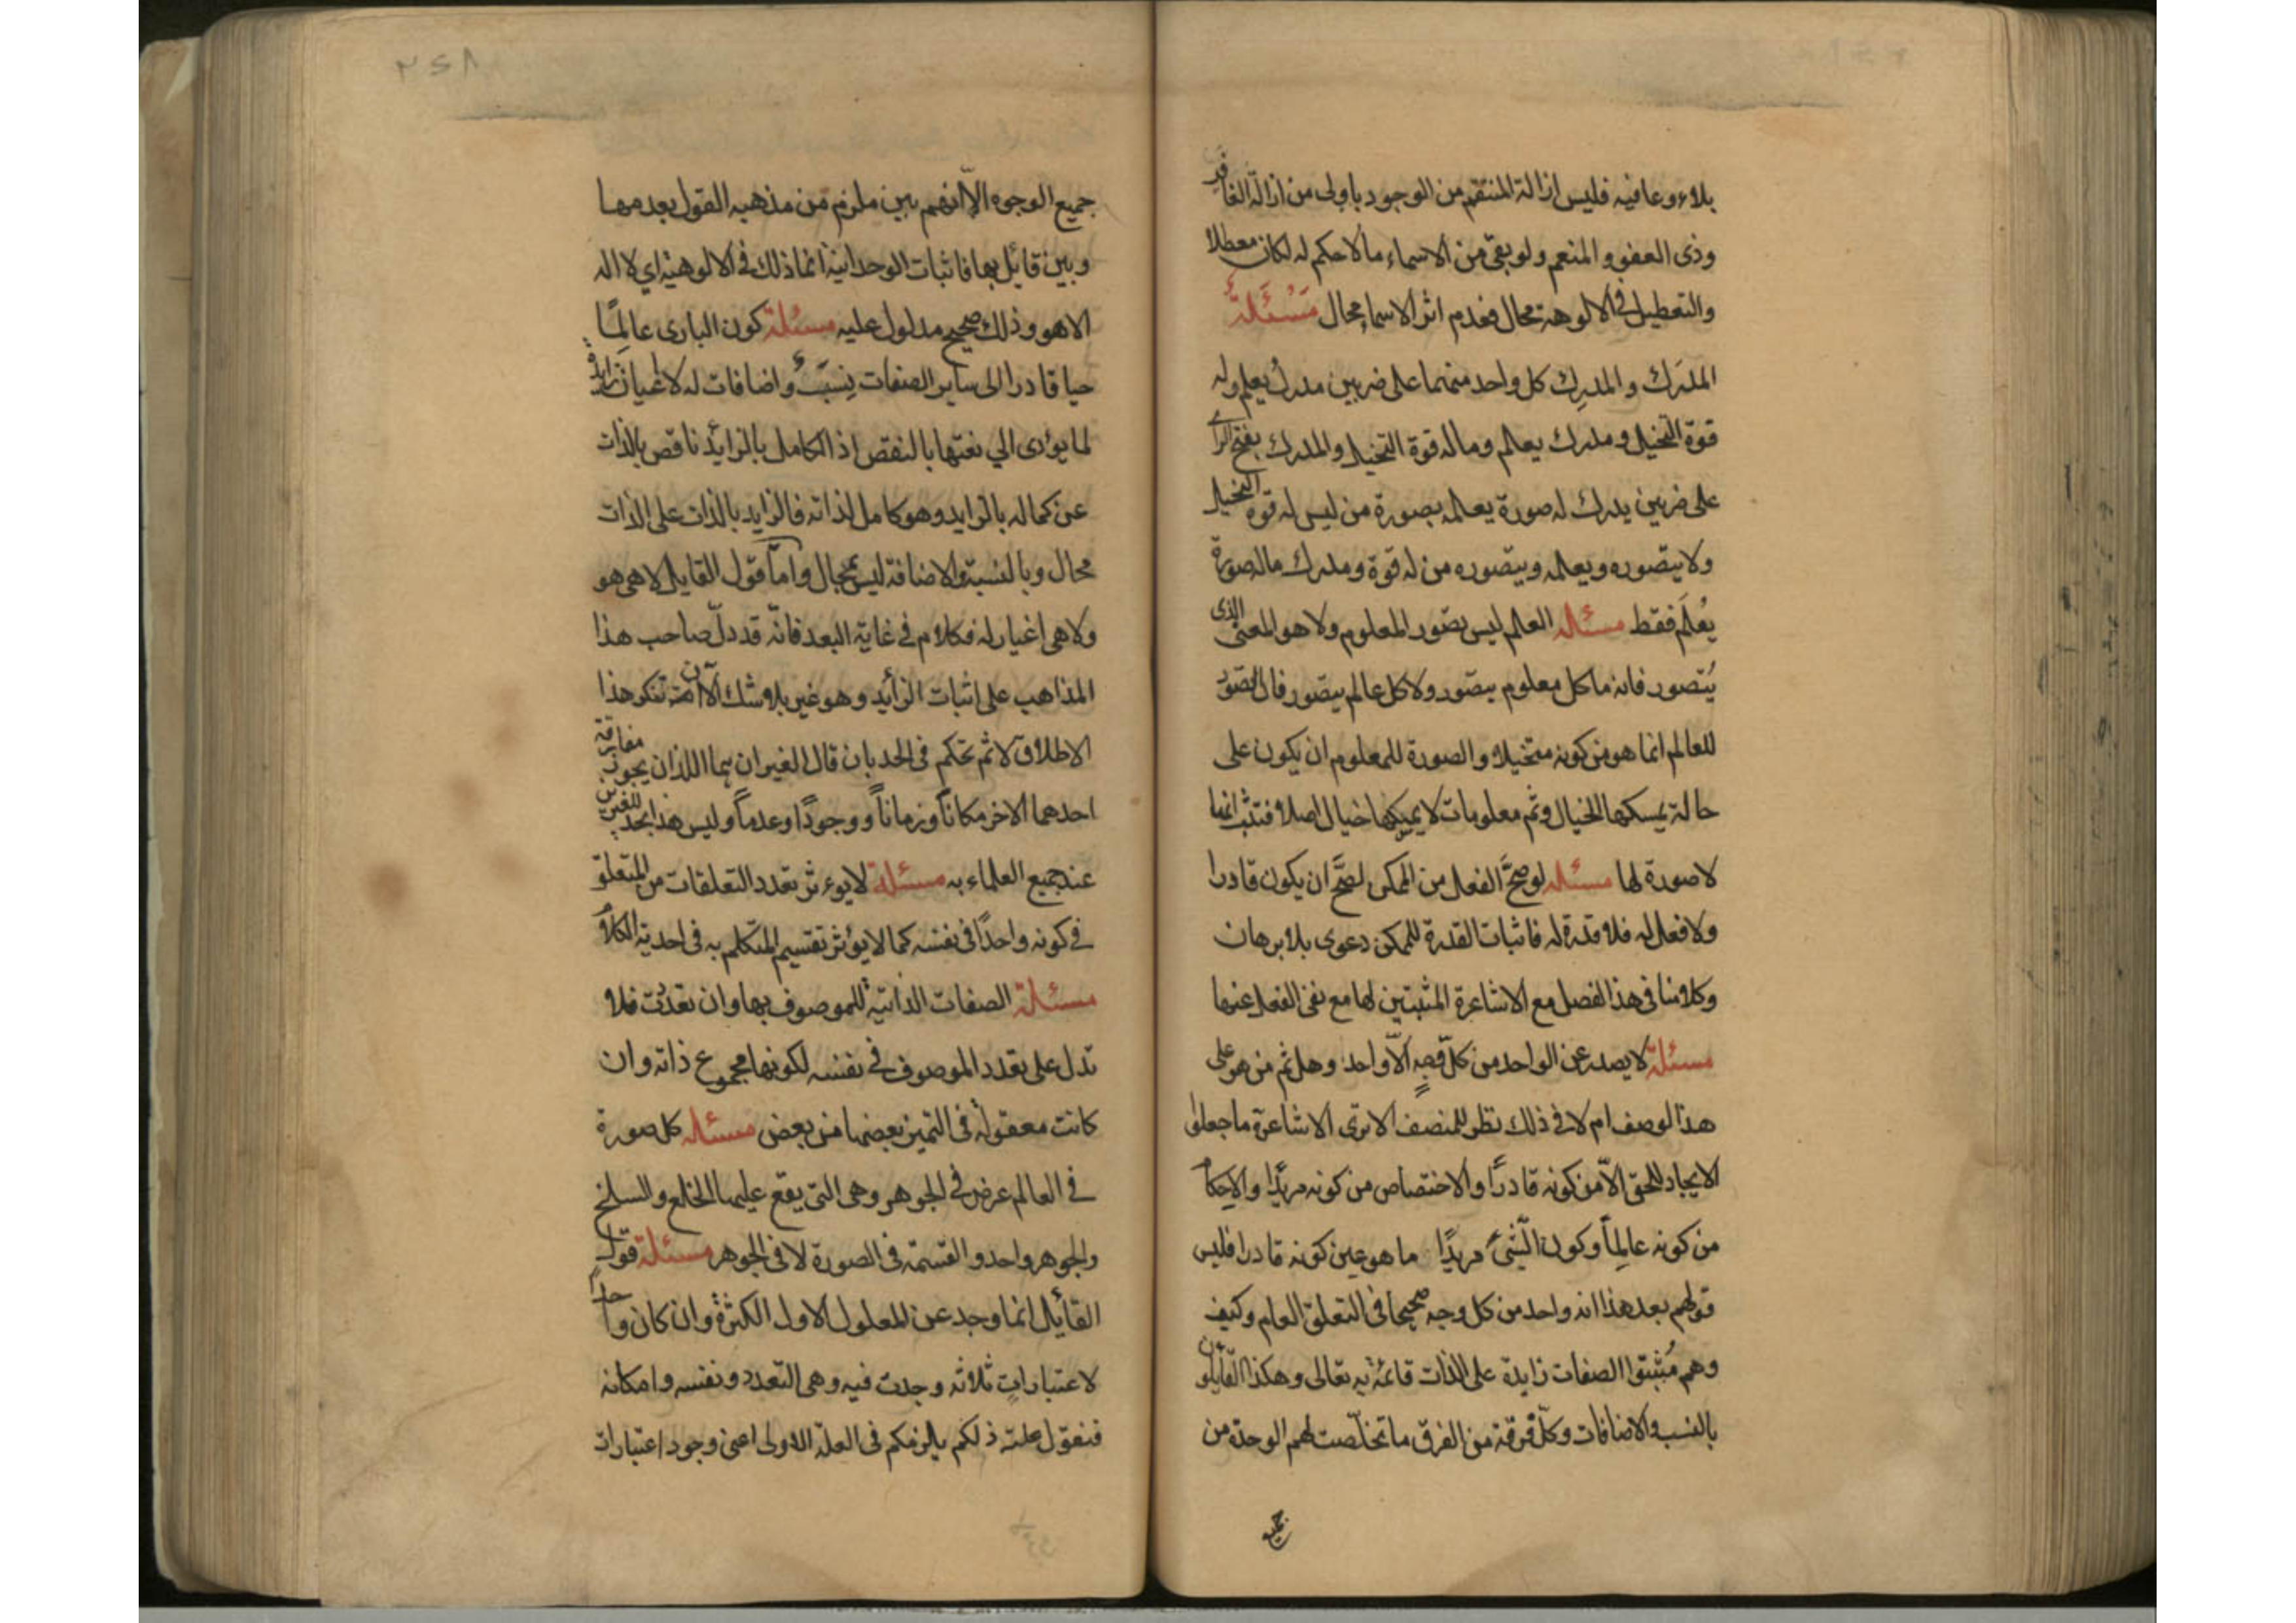 بلاء وعافيه فليس ازالة المنتقم من الوجود باولى من ازالة الغافر
وذى العفو و المنعم ولو بقى من الاسماء مالا حكم له لكان معطلا
والتعطيل فى الالوهة محال فعدم اثر الاسماء محال مَسْئَلَةٌ
المدرَك والمدرِك كل واحد منهما على ضربين مدرك يعلم وله
قوة التخيل ومدرك يعلم وماله قوة التخيل والمدرك بفتح الراى
على ضربين يدرك له صورة يعلمه بصورة من ليس له قوة التخيل
ولا يتصوره ويعلمه ويتصوره من له قوة ومدرك ماله صورة
يُعْلَم فقط مسئله العلم ليس تصور المعلوم ولا هو المعنى الذى
يُتصور فانه ما كل معلوم يتصور ولا كل عالم يتصور فان التصور
للعالم انما هو من كونه متخيلا والصورة للمعلوم ان يكون على
حالة يمسكها الخيال وثم معلومات لا يمسكها خيال اصلا فثبت انها
لا صورة لها مسئله لو صحَّ الفعل من الممكن لصحَّ ان يكون قادرا
ولا فعل له فلا قدرة له فاثبات القدرة للممكن دعوى بلا برهان
وكلامنا فى هذا الفصل مع الاشاعرة المثبتين لها مع نفى الفعل عنها
مسئلة لا يصدر عن الواحد من كل وجه الاّ واحد وهل ثم من هو على
هذا الوصف ام لا فى ذلك نظر للمنصف الا ترى الاشاعرة ما جعلوا
الايجاد للحق الاّ من كونه قادرًا والاختصاص من كونه مريدًا والاحكام
من كونه عالماً وكون الشئ مريدًا ما هو عين كونه قادرا فليس
قولهم بعد هذا انه واحد من كل وجه صحيحا فى التعلق العام وكيف
وهم مُثبتوا الصفات زايدة على الذات قائمة به تعالى وهكذا القايلون
بالنسب والاضافات وكل فرقة من الفرق ما تخلصت لهم الوحدة من
جميع
٢٤٨
جميع الوجوه الاّ انهم بين ملزم من مذهبه القول بعدمها
وبين قائل بها فاثبات الوحدانية انما ذلك فى الالوهية اي لا اله
الا هو وذلك صحيح مدلول عليه مسئلة كون البارى عالمًا
حيا قادرا الى ساير الصفات نِسَبٌ واضافات له لا اعيان زايدة
لما يؤدى الي نعتها بالنقص اذ الكامل بالزايد ناقص بالذات
عن كماله بالزايد وهو كامل لذاته فالزايد بالذات على الذات
محال وبالنسبة والاضافة ليس بمحال وامّا قول القايل لا هى هو
ولا هى اغيار له فكلام فى غاية البعد فانّه قد دلّ صاحب هذا
المذاهب على اثبات الزائد وهو غير بلا شك الا انه تنكر هذا
الاطلاق لا ثم تحكم فى الحد بان قال الغيران هما اللذان يجوز مفارقة
احدهما الاخر مكانًا وزمانًا ووجودًا وعدمًا وليس هذا بحد للغيرين
عند جميع العلماء به مسئلة لا يوءثر تعدد التعلقات من المتعلق
فى كونه واحدًا فى نفسه كما لا يؤثر تقسيم المتكلم به فى احدية الكلام
مسئلة الصفات الذاتية للموصوف بها وان تعددت فلا
تدل على تعدد الموصوف فى نفسه لكونها مجموع ذاته وان
كانت معقولة فى التميز بعضها من بعض مسئله كل صورة
فى العالم عرض فى الجوهر وهى التى يقع عليها الخلع والسلخ
والجوهر واحد والقسمة فى الصورة لا فى الجوهر مسئلة قول
القائل انما وجد عن المعلول الاول الكثرة وان كان واحدا
لاعتبارات ثلاثه وجدت فيه وهى التعدد ونفسه وامكانه
فنقول علته ذلكم يلزمكم فى العلة الاولى اعنى وجود اعتبارات